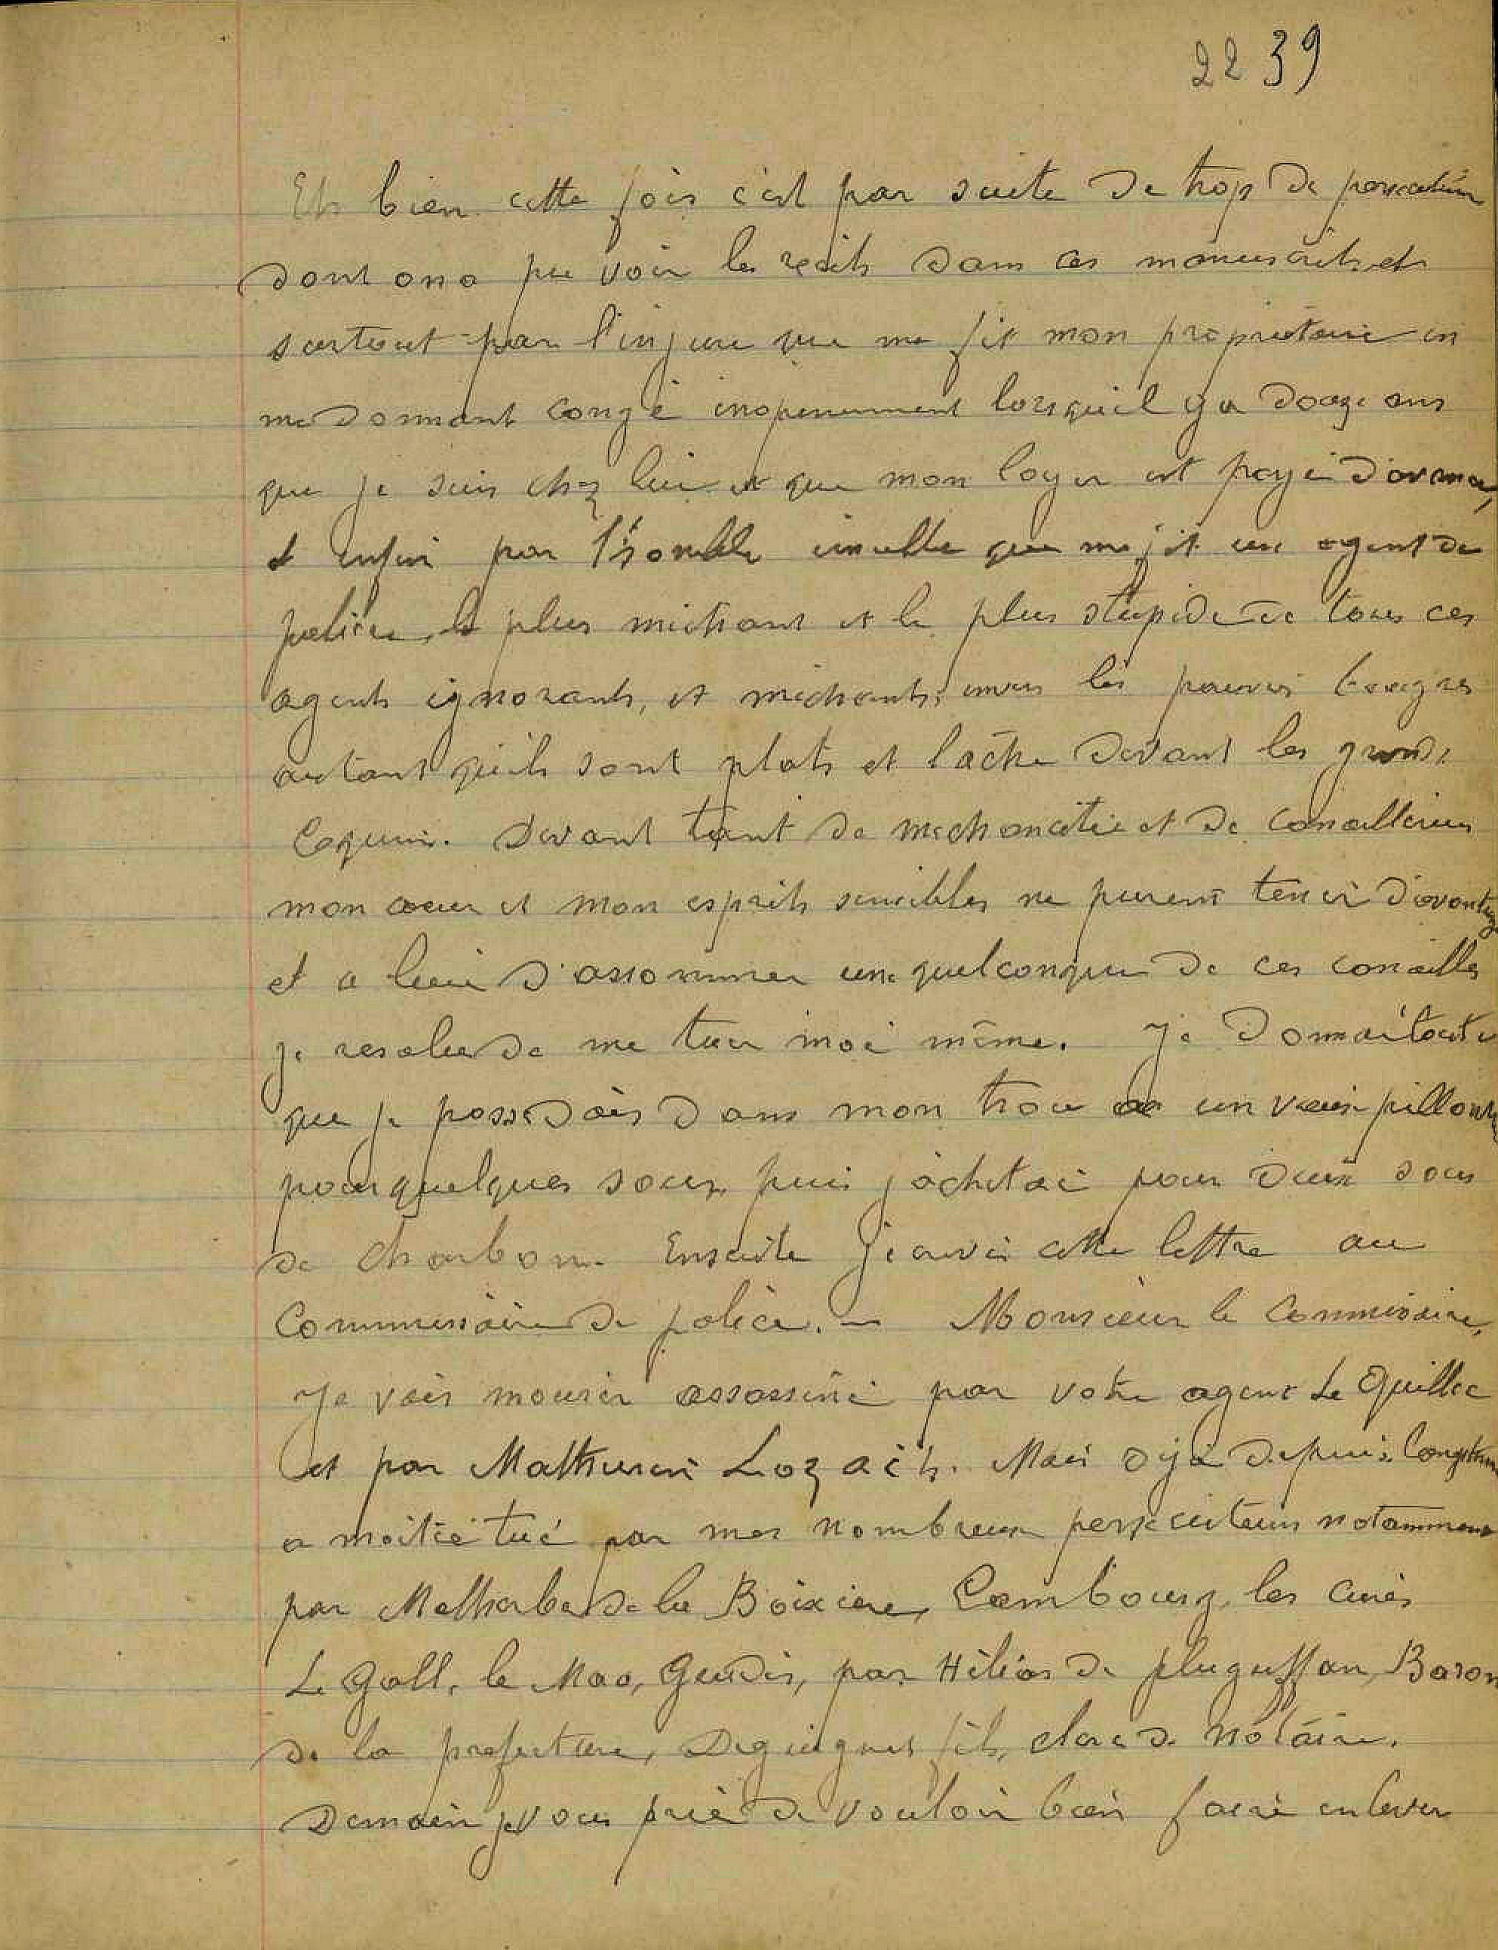 22 39
Eh bien cette fois c'est par suite de trop de persecution
dont on a pu voir les recits dans ces manuscrits et
surtout par l'injure que me fit mon propriétaire en
me donnant congé inopinement lorsqu'il y a douze ans
que je suis chez lui et que mon loyer est payé d'avance,
et enfin par l'horrible insulte que me fit un agent de
police, le plus méchant et le plus stupide de tous ces
agents ignorants, et méchants, envers les pauvres bougres
autant qu'ils sont plats et lâche devant les grands
Coquins. Devant tant de mechancetée et de canailleries
mon cœur et mon esprits sensibles ne purent tenir d'avantage
et a lieu d'assommer une quelconque de ces canailles
je resolus de me tuer moi même. Je donnai tout ce
que je possedais dans mon trou a un vieux pillouer
pour quelques sous, puis j'achetai pour deux sous
de charbon. Ensuite j'ecrivis cette lettre au
Commissaire de police. — Monsieur le Commissaire,
Je vais mourir assassiné par votre agent Le Quillec
et par Mathurin Lozac'h. Mais déjà depuis longtemps
a moitié tué par mes nombreux persecuteurs notamment
par Malherbe de la Boixiere, Cambourg, les curés
Le Gall, le Mao, Gendis, par Hélias de pluguffan, Baron
de la prefecture, fils, clerc de notaire.
Demain je vous prie de vouloir bien faire enlever